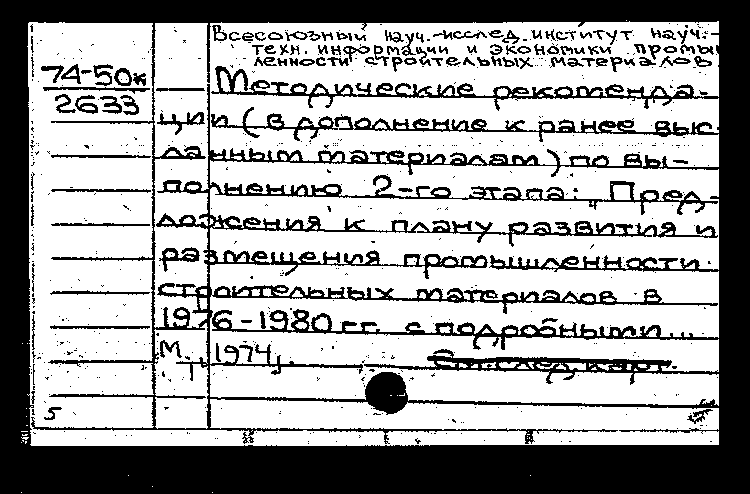 Всесоюзный науч.-исслед. институт науч.-
техн. информации и экономики промы
ленности строительных материалов
74-50к
2633
Методические рекоменда-
ции (в дополнение к ранее выс
ланным материалам) по вы-
полнению 2-го этапа: „Пред-
ложения к плану развития и
размещения промышленности
строительных материалов в
1976-1980 гг. с подробными...
М., 1974.
См. след. карт.
5